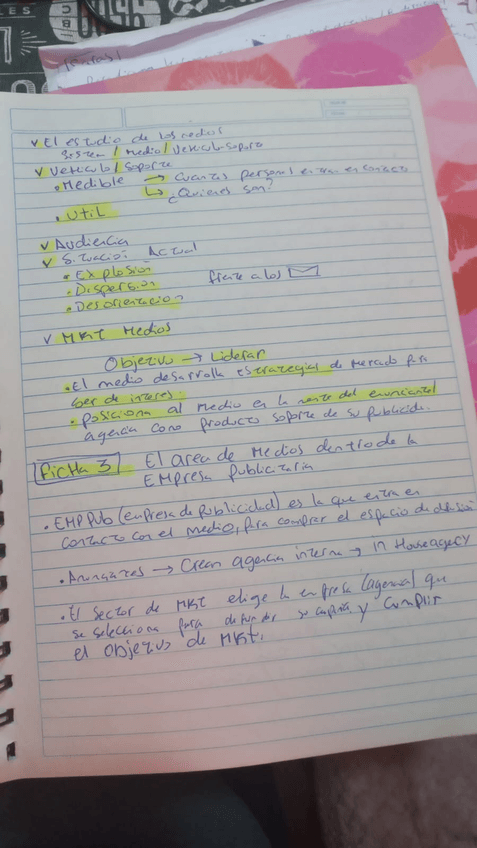 ✓ El estudio de los medios
sistem / Medio / Vehiculo-Soporte
✓ Vehiculo / Soporte
• Medible → Cuantas personas entran en contacto
↳ ¿Quienes son?
• Util
✓ Audiencia
✓ Situación Actual
• Explosion
• Dispersion frente a los
• Desorientacion
✓ MKT Medios
Objetivo → Liderar
• El medio desarrolla estrategias de Mercado para
ser de interes.
• posiciona al medio en la mente del anunciante/
agencia como producto soporte de su publicida.
Ficha 3 El area de Medios dentro de la
Empresa publicitaria
• EMP PUB (empresa de publicidad) es la que entra en
contacto con el medio, para comprar el espacio de difusión
• Anunciantes → Crean agencia interna → in House agecy
• El sector de MKT elige la empresa (agencia) que
se selecciona para difundir su campaña y cumplir
el objetivo de MKT.